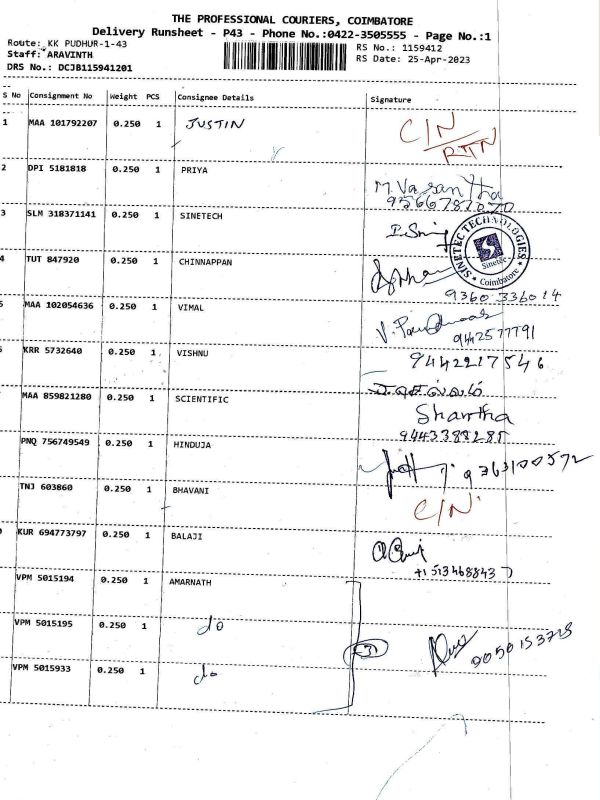 THE PROFESSIONAL COURIERS, COIMBATORE
Delivery Runsheet - P43 - Phone No.:0422-3505555 - Page No.:1
Route: KK PUDHUR-1-43
RS No.: 1159412
Staff: ARAVINTH
RS Date: 25-Apr-2023
DRS No.: DCJB115941201
S No Consignment No Weight PCS Consignee Details Signature
1 MAA 101792207 0.250 1 JUSTIN C/N
RTN
2 DPI 5181818 0.250 1 PRIYA M. Vasantha
3 SLM 318371141 0.250 1 SINETECH
SINETEC TECHNOLOGIES
Sinetec
Coimbatore
4 TUT 847920 0.250 1 CHINNAPPAN
9360336014
MAA 102054636 0.250 1 VIMAL
9442577791
KRR 5732640 0.250 1 VISHNU 9442217546
MAA 859821280 0.250 1 SCIENTIFIC
Shantha
PNQ 756749549 0.250 1 HINDUJA 9443388285
9363100572
TNJ 603860 0.250 1 BHAVANI C/N
KUR 694773797 0.250 1 BALAJI
VPM 5015194 0.250 1 AMARNATH
VPM 5015195 0.250 1 do
3
VPM 5015933 0.250 1 do